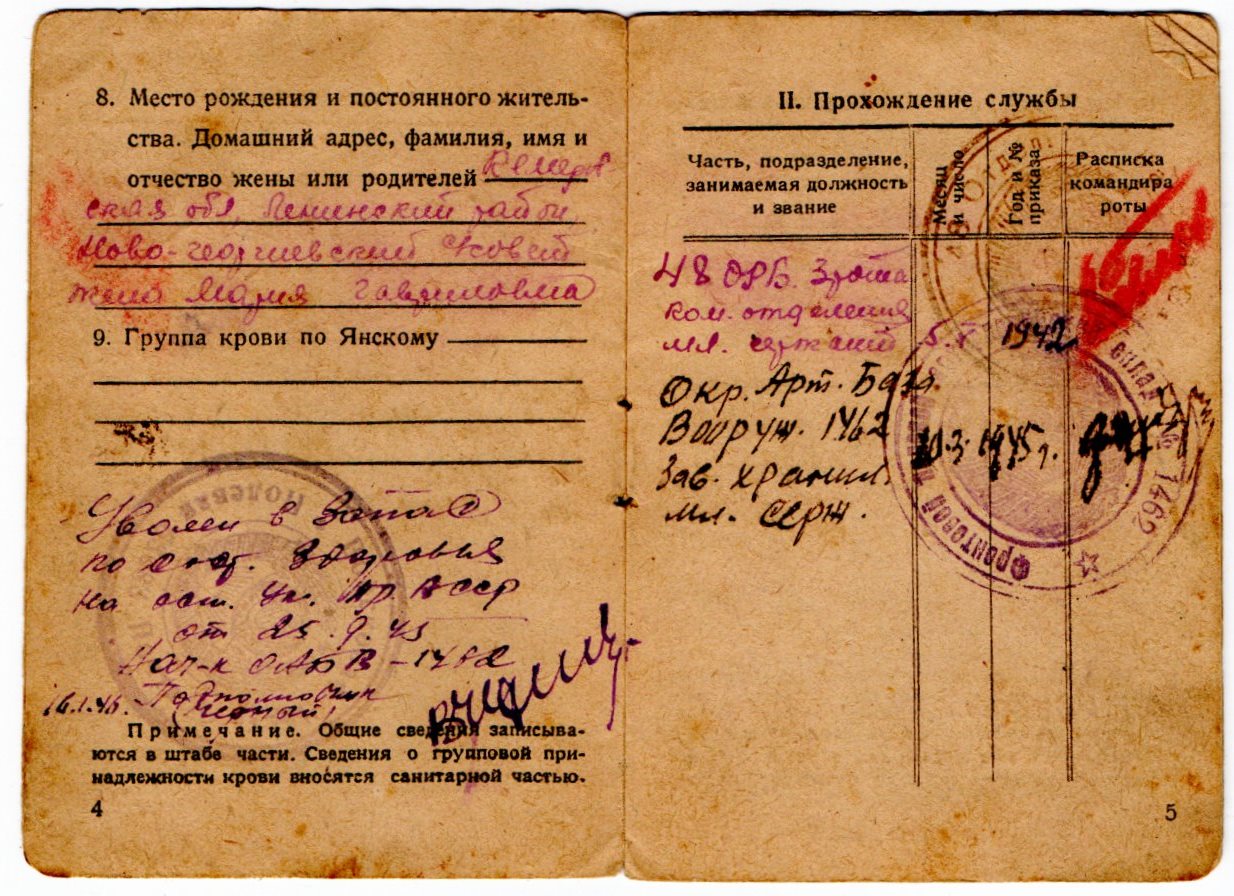 8. Место рождения и постоянного житель-
ства. Домашний адрес, фамилия, имя и
отчество жены или родителей Кемеров
ская обл. Ленинский район
Ново-георгиевский Совет
жена Мария Гавриловна
9. Группа крови по Янскому
Уволен в Запас
по сост. Здоровья
на осн. Ук. Пр. ССр
от 25.9.45
Нач-к ОАБВ-1462
16.1.46. Подполковник
(Черный)
Примечание. Общие сведения записыва-
ются в штабе части. Сведения о групповой при-
надлежности крови вносятся санитарной частью.
4
II. Прохождение службы
Часть, подразделение,
занимаемая должность
и звание
Месяц
и число
Год и №
приказа
Расписка
командира
роты
48 ОРБ. 3 рота
ком. отделения
мл. сержант 5.I 1942
Окр. Арт. База
Вооруж. 1462 10.3 1945 г.
Зав. хранил.
мл. серж.
Фронтовой склад № 1462
5